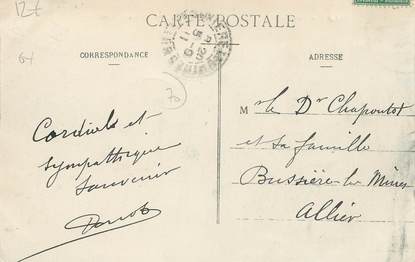 12 f
CARTE POSTALE
CORRESPONDANCE
ADRESSE
70
Cordial et
sympathique
souvenir
M r le Dr Chapoutot
et sa famille
Bussière les Mines
Allier